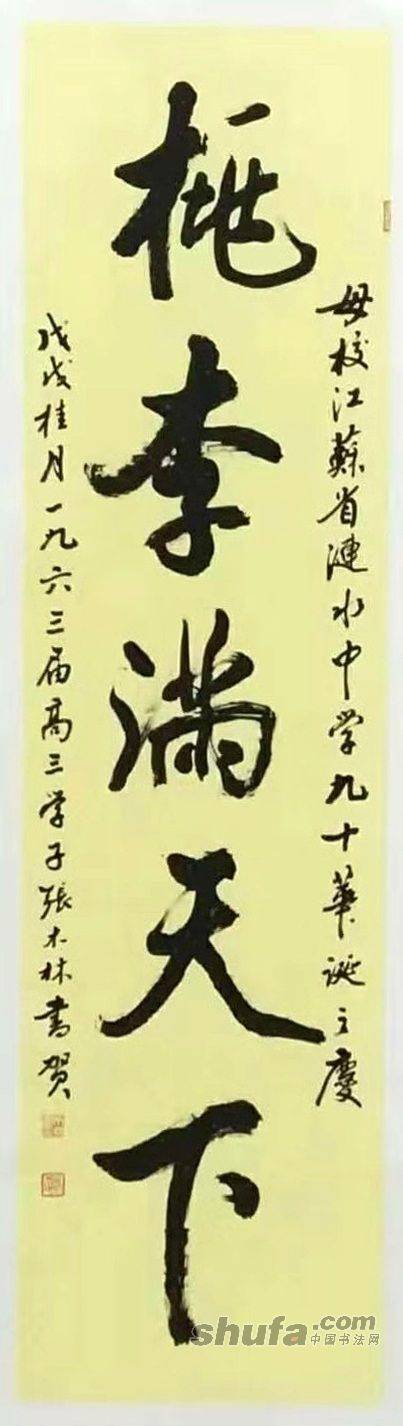 母校江蘇省漣水中学九十華诞之慶
桃李满天下
戊戌桂月一九六三届高三学子張木林書贺
shufa.com
中国书法网